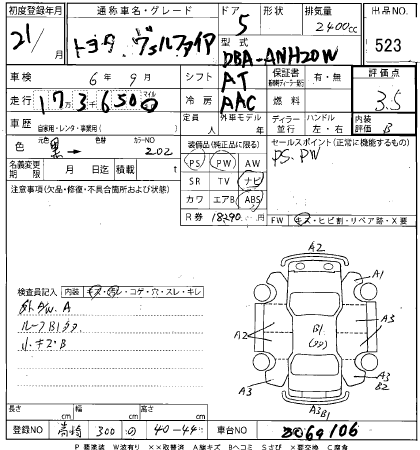 初度登録年月 通称車名・グレード ドア 形状 排気量 出品NO.
21/月 トヨタ ヴェルファイア 5 2400cc 523
型式 DBA-ANH20W
車検 6年 9月 シフト AT 保証書 有・無 評価点
走行 173650 マイル 冷房 AAC 燃料 3.5
車歴 自家用・レンタ・事業用( ) 定員 人 外車モデル ディーラー 並行 ハンドル 左・右 内装評価 B
色 元色 黒→ 色替 カラーNO 202 装備品(純正品に限る) セールスポイント(正常に機能するもの)
PS PW AW PS.PW
名義変更期限 月 日迄 積載量 t SR TV ナビ
注意事項(欠品・修復・不具合箇所および状態) カワ エアB ABS
R券 18290 円 FW キズ・ヒビ割・リペア跡・X要
検査員記入 内装 キズ・汚レ・コゲ・穴・スレ・キレ
外AW.A
ルーフB1タタ
小キズ・B
A2
A1
A3
B1
A2
A3
A3
B2
A3
A3
B1
長さ cm 幅 cm 高さ cm
登録NO 高崎 300 の 40-44 車台NO 8069106
P 要塗装 W波有り ××取替済 A線キズ Bヘコミ Sさび ×要交換 C腐食